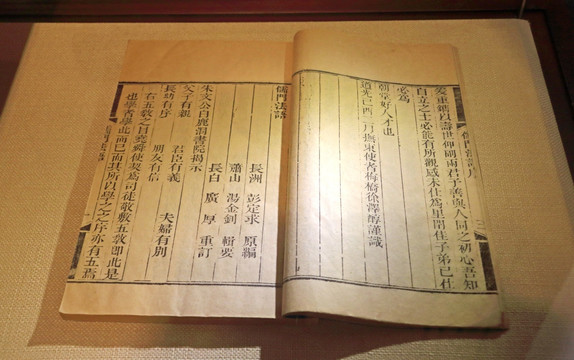 爰重鐫以壽世仰副兩君子善與人同之初心吾知
自立之士必能有所觀感未仕為里閈佳子弟已仕
必為
朝堂好人才也
道光己酉二月撫東使者梅橋徐澤醇謹識
儒門法語
長洲 彭定求 原編
蕭山 湯金釗 輯要
長白 廣厚 重訂
朱文公白鹿洞書院揭示
父子有親 君臣有義 夫婦有別
長幼有序 朋友有信
右五教之目堯舜使契為司徒敬敷五教即此是
也學者學此而已而其所以學之之序亦有五焉